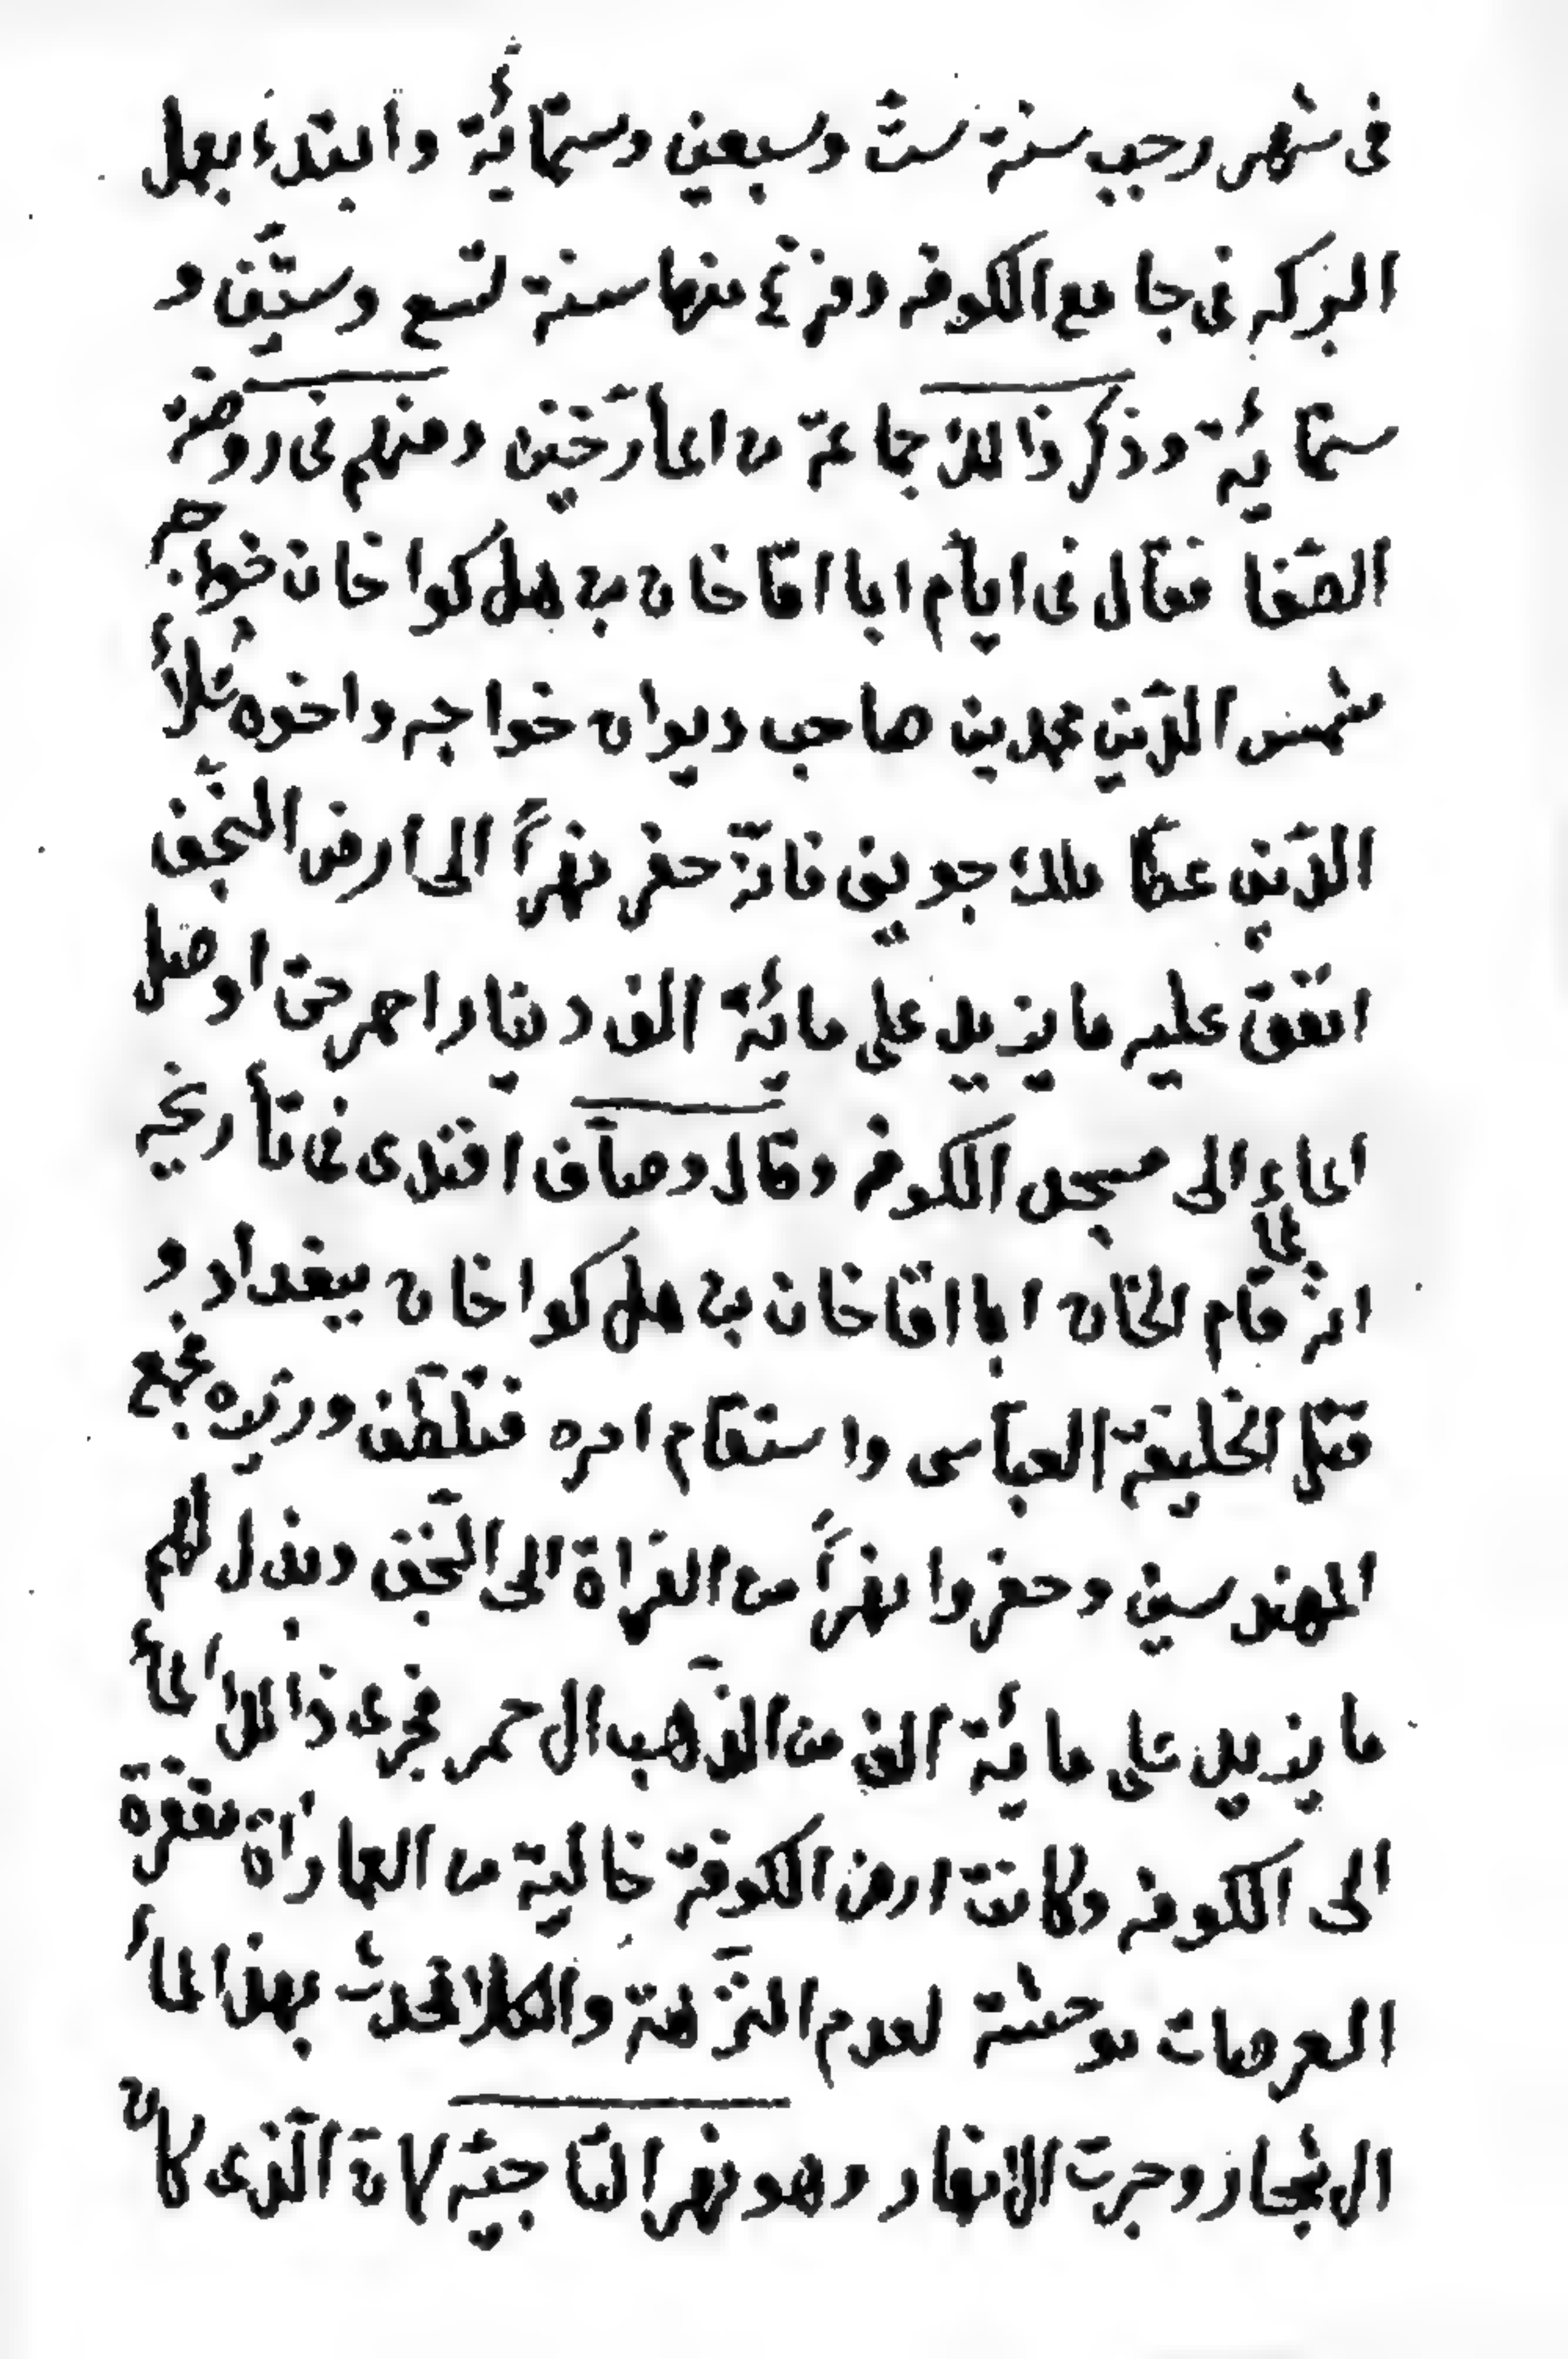 فى شهر رجب سنة ستّ وسبعين وستمائة وابتدء بعمل
البركه فى جامع الكوفه وفرغ منها سنة تسع وستّين و
ستمائة وذكر ذالك جماعة من المأرّخين ومنهم فى روضة
الصّفا فقال فى ايّام ابا اقا خان بن هلاكوا خان خواجه
شمس الدّين محمد بن صاحب ديوان خواجه واخوه علاأ
الدّين عطا ملك جوينى فانّه حفر نهراً الى ارض النّجف
انفق عليه ما يزيد على مائة الف دينار احمر حتى اوصل
الماء الى مسجد الكوفه وقال وصّاف افندى فى تأريخه
انه لمّا قام الخان ابا اقا خان بن هلاكوا خان ببغداد و
قتل الخليفة العبّاسى واستقام امره فتلطّف وزيره فجمع
المهندسين وحفروا نهراً من الفراة الى النّجف وبذل لهم
ما يزيد على مائة الف من الذّهب الاحمر فجرى ذالك المأ
الى الكوفه وكانت ارض الكوفة خالية من العماراة مقفرة
العرصات موحشة لعدم النّزهة والكلاأ فحدث بهذا المأ
الاشجار وجرت الانهار وهو نهر التّاجيّه لانّ الّذى كان